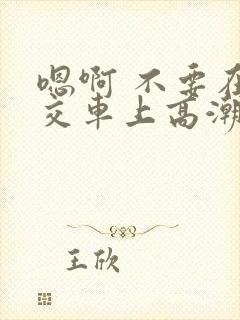 嗯啊 不要在
交车上高潮
王欣